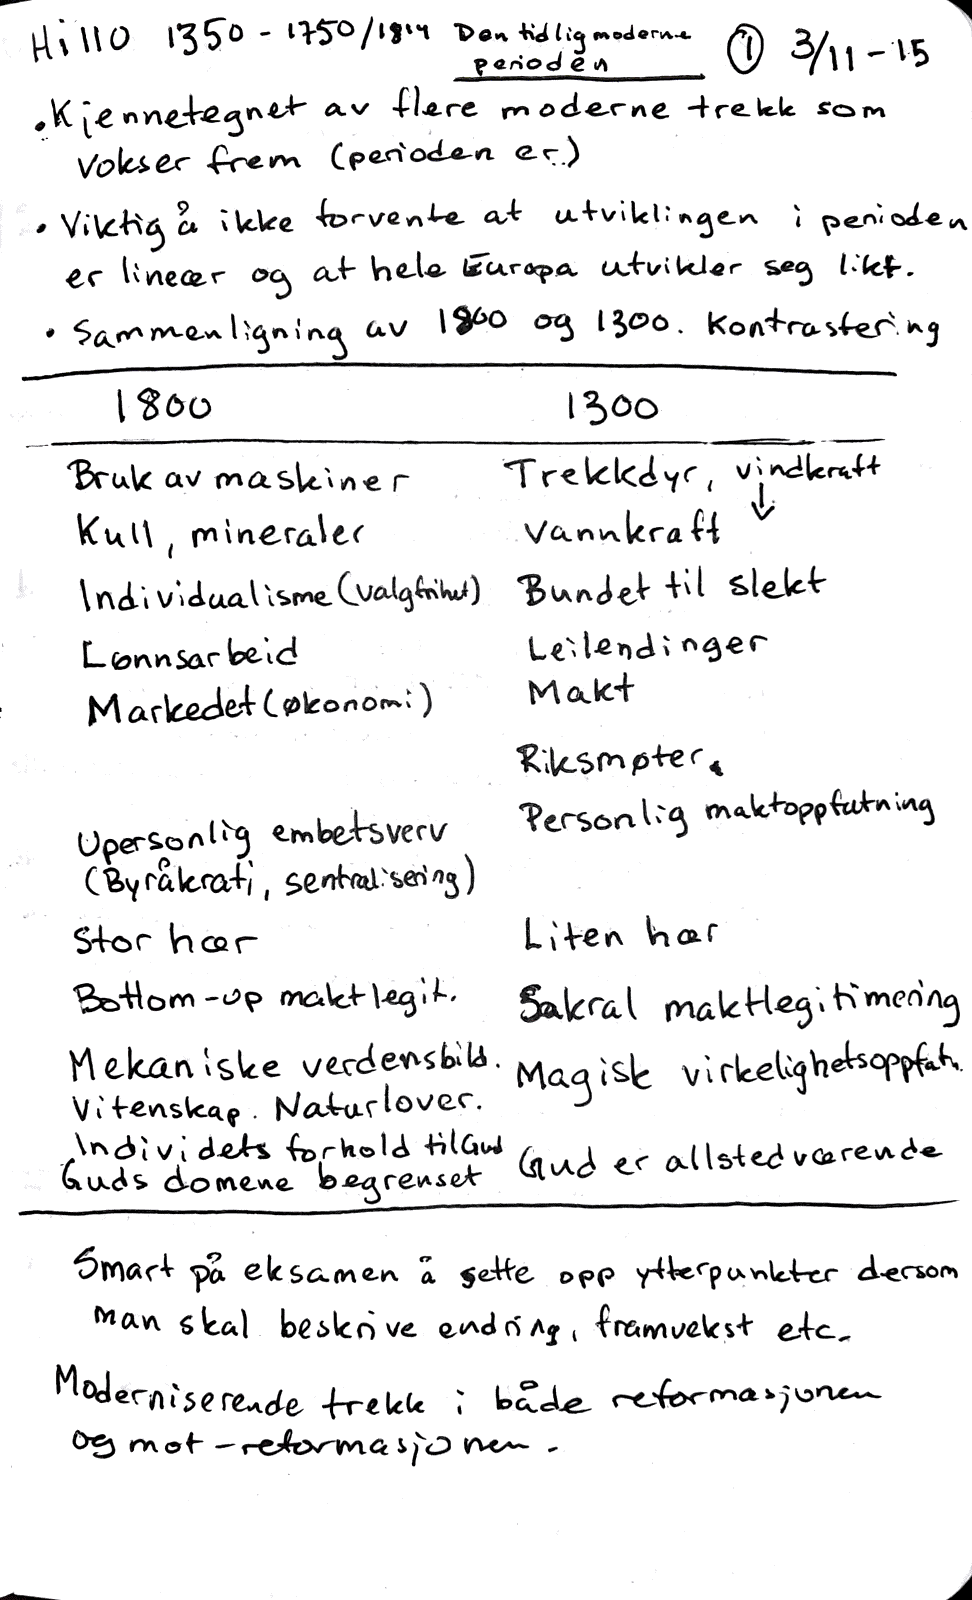 HI110 1350 - 1750/1814 Den tidlig moderne
perioden ① 3/11-15
• Kjennetegnet av flere moderne trekk som
vokser frem (perioden er.)
• Viktig å ikke forvente at utviklingen i perioden
er lineær og at hele Europa utvikler seg likt.
• Sammenligning av 1800 og 1300. Kontrastering
1800 1300
Bruk av maskiner Trekkdyr, vindkraft
↓
Kull, mineraler Vannkraft
Individualisme (valgfrihet) Bundet til slekt
Lønnsarbeid Leilendinger
Markedet (økonomi) Makt
Riksmøter.
Personlig maktoppfatning
Upersonlig embetsverv
(Byråkrati, sentralisering)
Stor hær Liten hær
Bottom-up maktlegit. Sakral maktlegitimering
Mekaniske verdensbild. Magisk virkelighetsoppfatn.
Vitenskap. Naturlover.
Individets forhold til Gud Gud er allstedværende
Guds domene begrenset
Smart på eksamen å sette opp ytterpunkter dersom
man skal beskrive endring, framvekst etc.
Moderniserende trekk i både reformasjonen
og mot-reformasjonen.